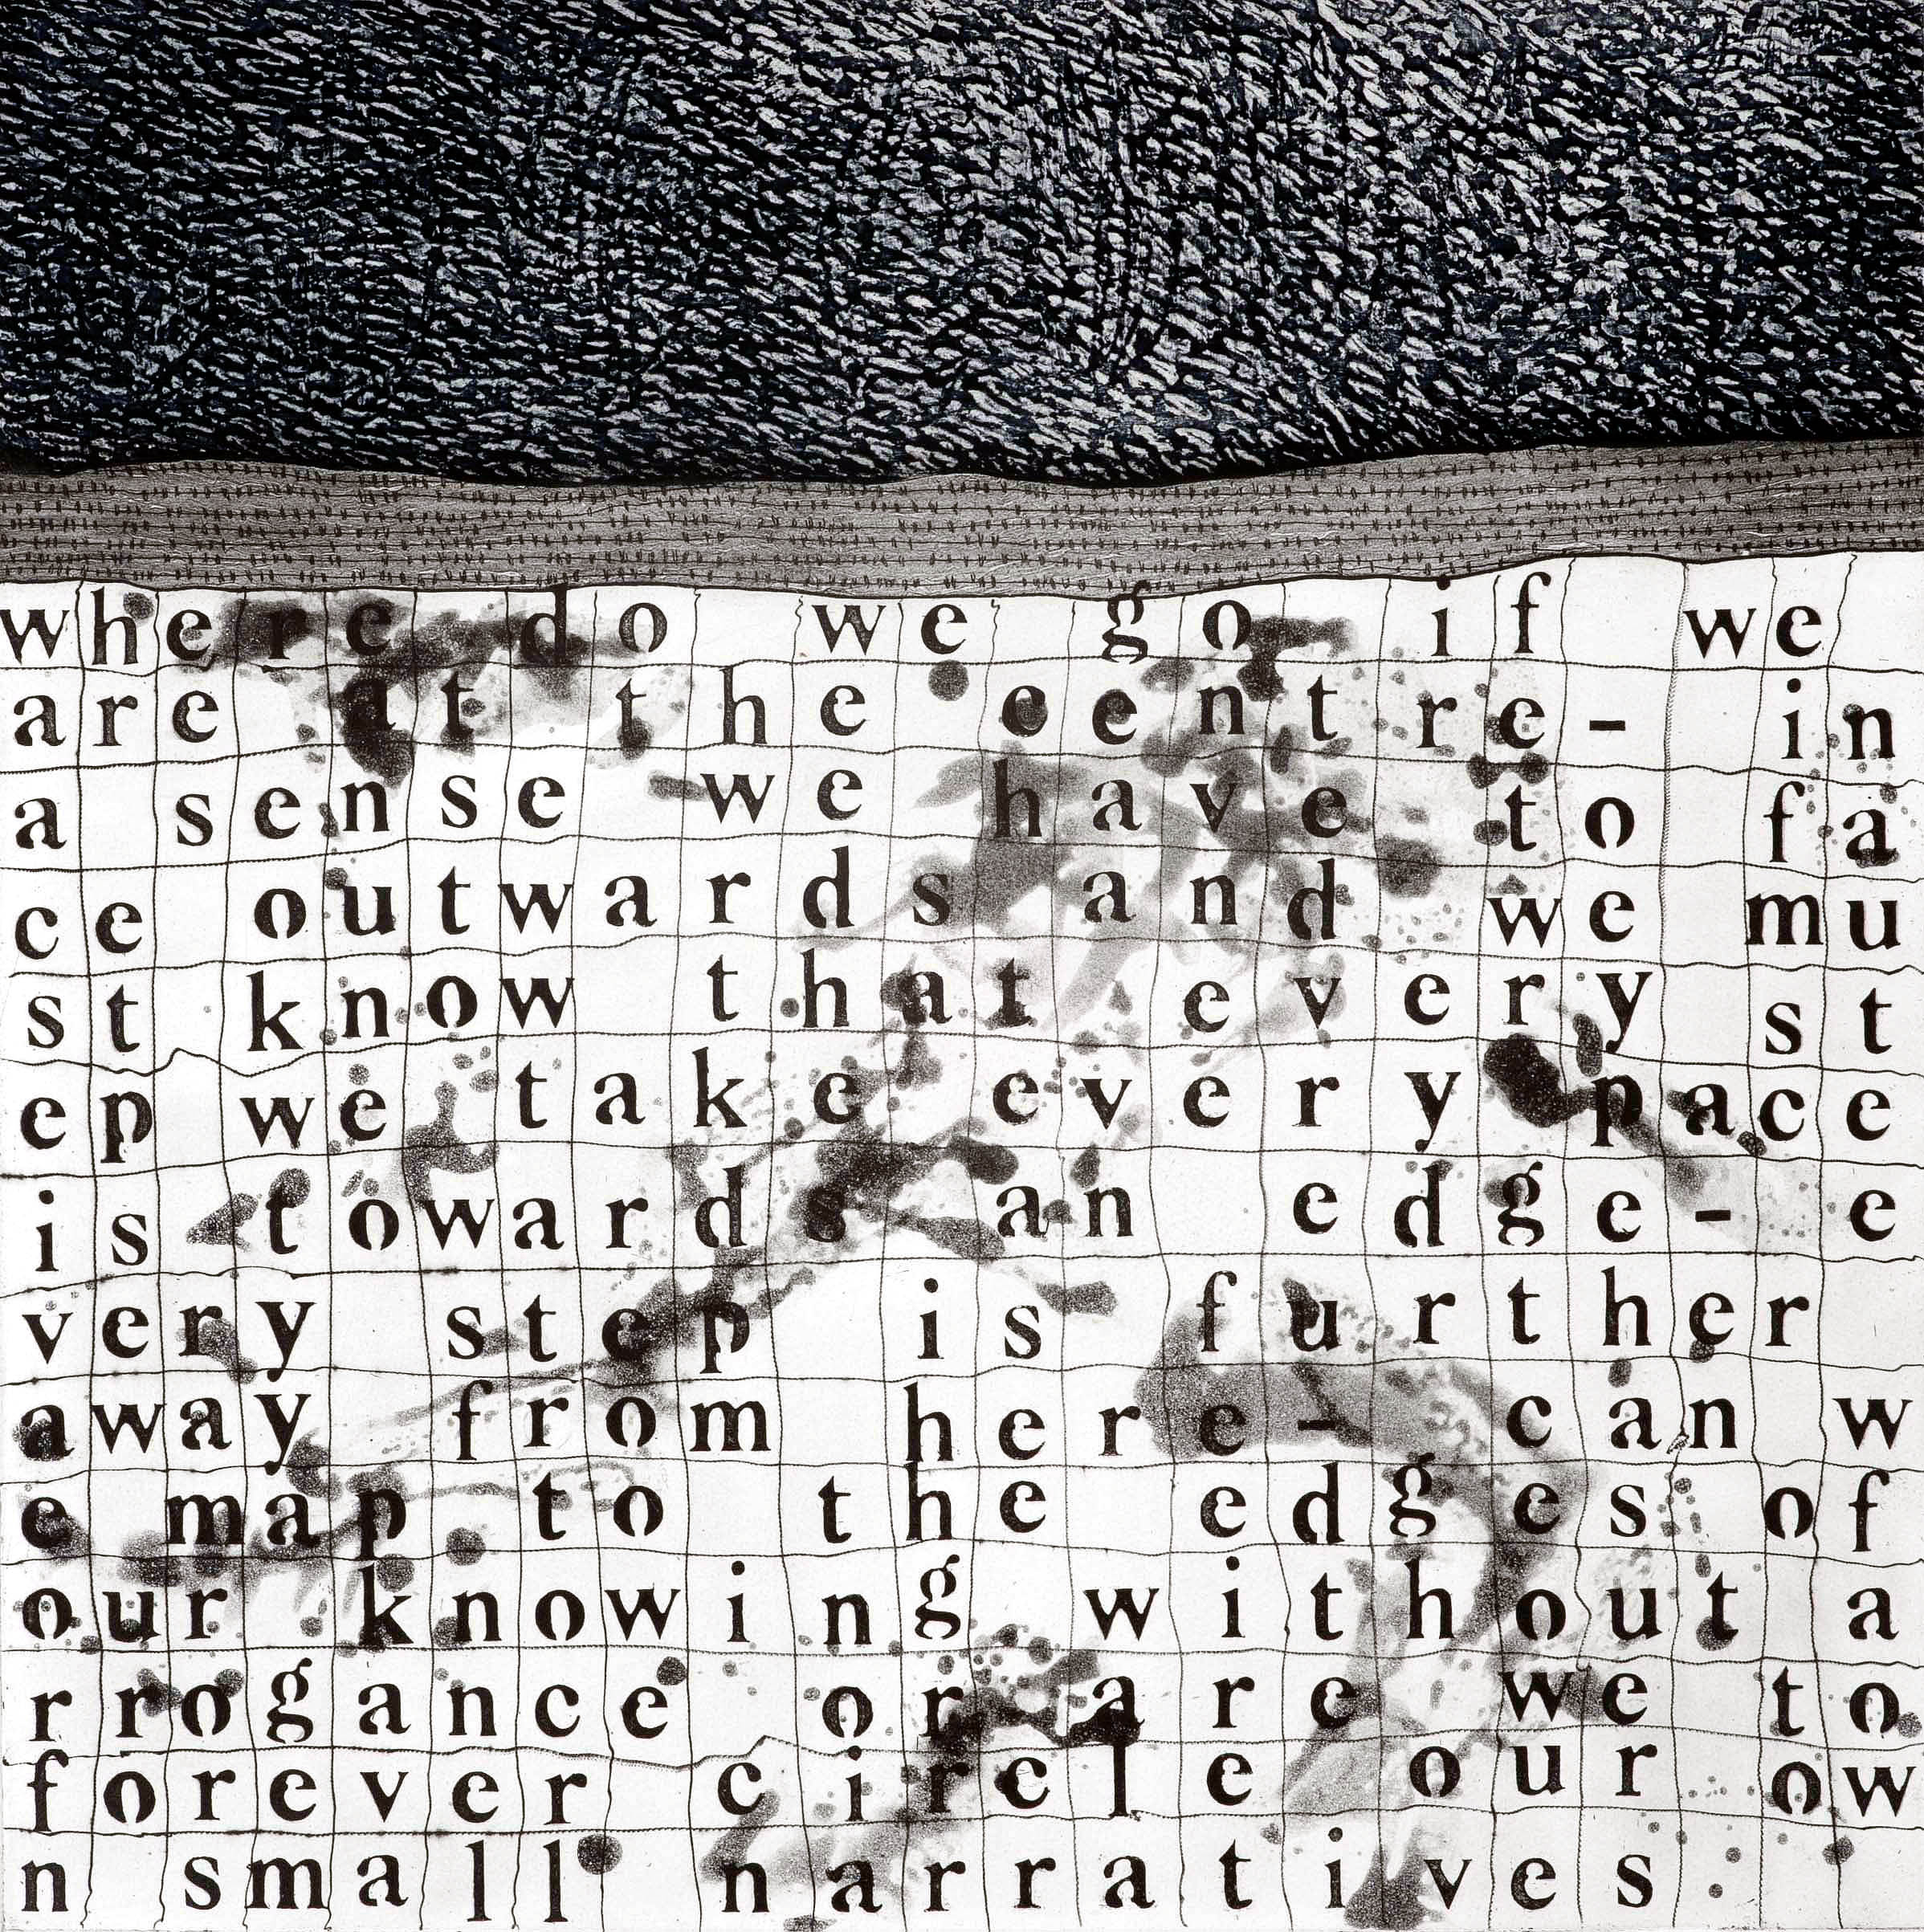 where do we go if we
are at the centre- in
a sense we have to fa
ce outwards and we mu
st know that every st
ep we take every pace
is towards an edge- e
very step is further
away from here- can w
e map to the edges of
our knowing without a
rrogance or are we to
forever circle our ow
n small narratives